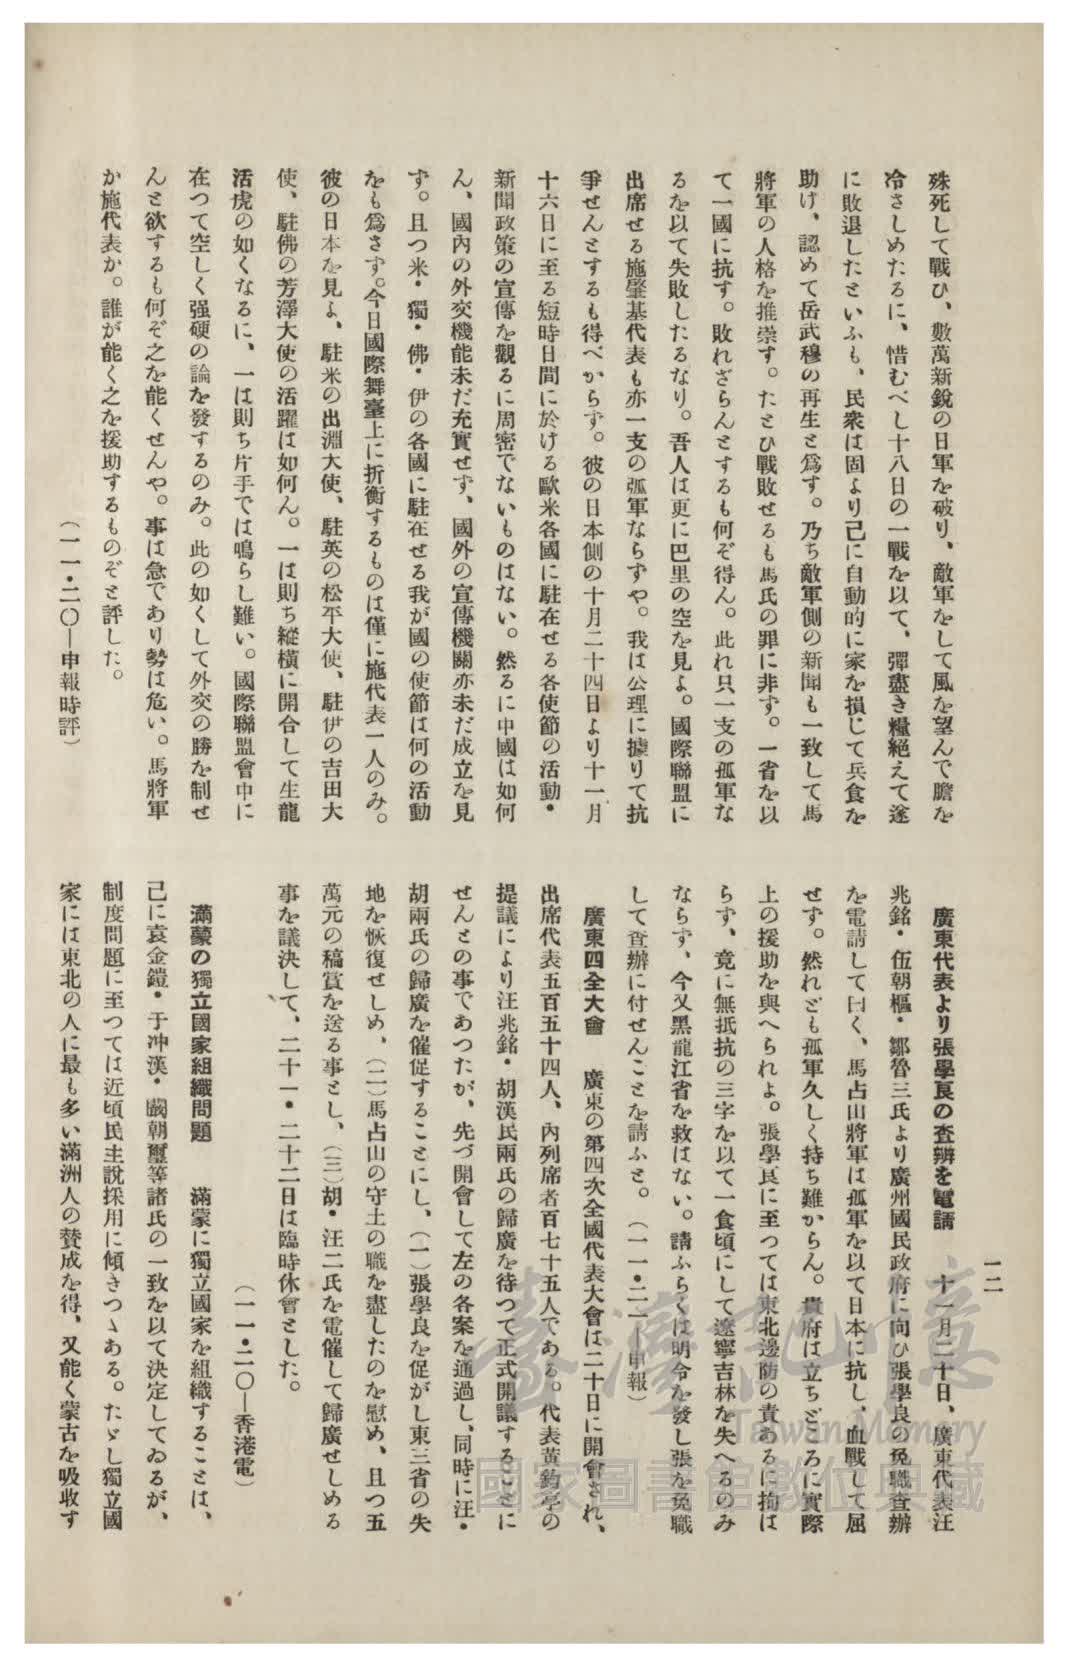 殊死して戰ひ、數萬新銳の日軍を破り、敵軍をして風を望んで膽を
冷さしめたるに、惜むべし十八日の一戰を以て、彈盡き糧絕えて遂
に敗退したといふも、民衆は固より己に自動的に家を損じて兵食を
助け、認めて岳武穆の再生と爲す。乃ち敵軍側の新聞も一致して馬
將軍の人格を推崇す。たとひ戰敗せるも馬氏の罪に非ず。一省を以
て一國に抗す。敗れざらんとするも何ぞ得ん。此れ只一支の孤軍な
るを以て失敗したるなり。吾人は更に巴里の空を見よ。國際聯盟に
出席せる施肇基代表も亦一支の孤軍ならずや。我は公理に據りて抗
爭せんとするも得べからず。彼の日本側の十月二十四日より十一月
十六日に至る短時日間に於ける歐米各國に駐在せる各使節の活動・
新聞政策の宣傳を觀るに周密でないものはない。然るに中國は如何
ん、國內の外交機能未だ充實せず、國外の宣傳機關亦未だ成立を見
ず。且つ米・獨・佛・伊の各國に駐在せる我が國の使節は何の活動
をも爲さず。今日國際舞臺上に折衝するものは僅に施代表一人のみ。
彼の日本を見よ、駐米の出淵大使、駐英の松平大使、駐伊の吉田大
使、駐佛の芳澤大使の活躍は如何ん。一は則ち縱橫に開合して生龍
活虎の如くなるに、一は則ち片手では鳴らし難い。國際聯盟會中に
在つて空しく强硬の論を發するのみ。此の如くして外交の勝を制せ
んと欲するも何ぞ之を能くせんや。事は急であり勢は危い。馬將軍
か施代表か。誰が能く之を援助するものぞと評した。
（一一・二〇―申報時評）
一二
廣東代表より張學良の査辦を電請　十一月二十日、廣東代表汪
兆銘・伍朝樞・鄒魯三氏より廣州國民政府に向ひ張學良の免職査辦
を電請して曰く、馬占山將軍は孤軍を以て日本に抗し、血戰して屈
せず。然れども孤軍久しく持ち難からん。貴府は立ちどころに實際
上の援助を與へられよ。張學良に至つては東北邊防の責あるに拘は
らず、竟に無抵抗の三字を以て一食頃にして遼寧吉林を失へるのみ
ならず、今又黑龍江省を救はない。請ふらくは明令を發し張を免職
して査辦に付せんことを請ふと。（一一・二一―申報）
廣東四全大會　廣東の第四次全國代表大會は二十日に開會され、
出席代表五百五十四人、內列席者百七十五人である。代表黃鈞亭の
提議により汪兆銘・胡漢民兩氏の歸廣を待つて正式開議することに
せんとの事であつたが、先づ開會して左の各案を通過し、同時に汪・
胡兩氏の歸廣を催促することにし、（一）張學良を促がし東三省の失
地を恢復せしめ、（二）馬占山の守土の職を盡したのを慰め、且つ五
萬元の犒賞を送る事とし、（三）胡・汪二氏を電催して歸廣せしめる
事を議決して、二十一・二十二日は臨時休會とした。
（一一・二〇―香港電）
滿蒙の獨立國家組織問題　滿蒙に獨立國家を組織することは、
己に袁金鎧・于冲漢・闞朝璽等諸氏の一致を以て決定してゐるが、
制度問題に至つては近頃民主說採用に傾きつゝある。たゞし獨立國
家には東北の人に最も多い滿洲人の贊成を得、又能く蒙古を吸收す
臺灣記憶
Taiwan Memory
國家圖書館數位典藏